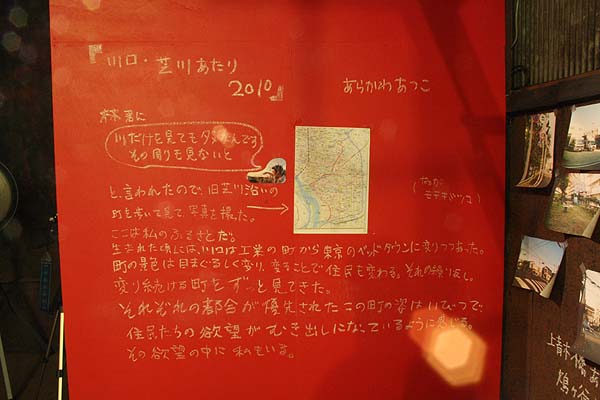 『川口・芝川あたり
2010』
あらかわあつこ
林君に
川だけを見てもダメなんです
その周りも見ないと
と、言われたので、旧芝川沿いの
町を歩いて見て、写真を撮った。
ここは私のふるさとだ。
生まれた頃には、川口は工業の町から東京のベットタウンに変りつつあった。
町の景色は目まぐるしく変り、変ることで住民も変わる。それの繰り返し。
変り続ける町をずっと見てきた。
それぞれの都合が優先されたこの町の姿はいびつで、
住民たちの欲望がむき出しになっているように感じる。
その欲望の中に私もいる。
上青木橋あ
鳩ヶ谷